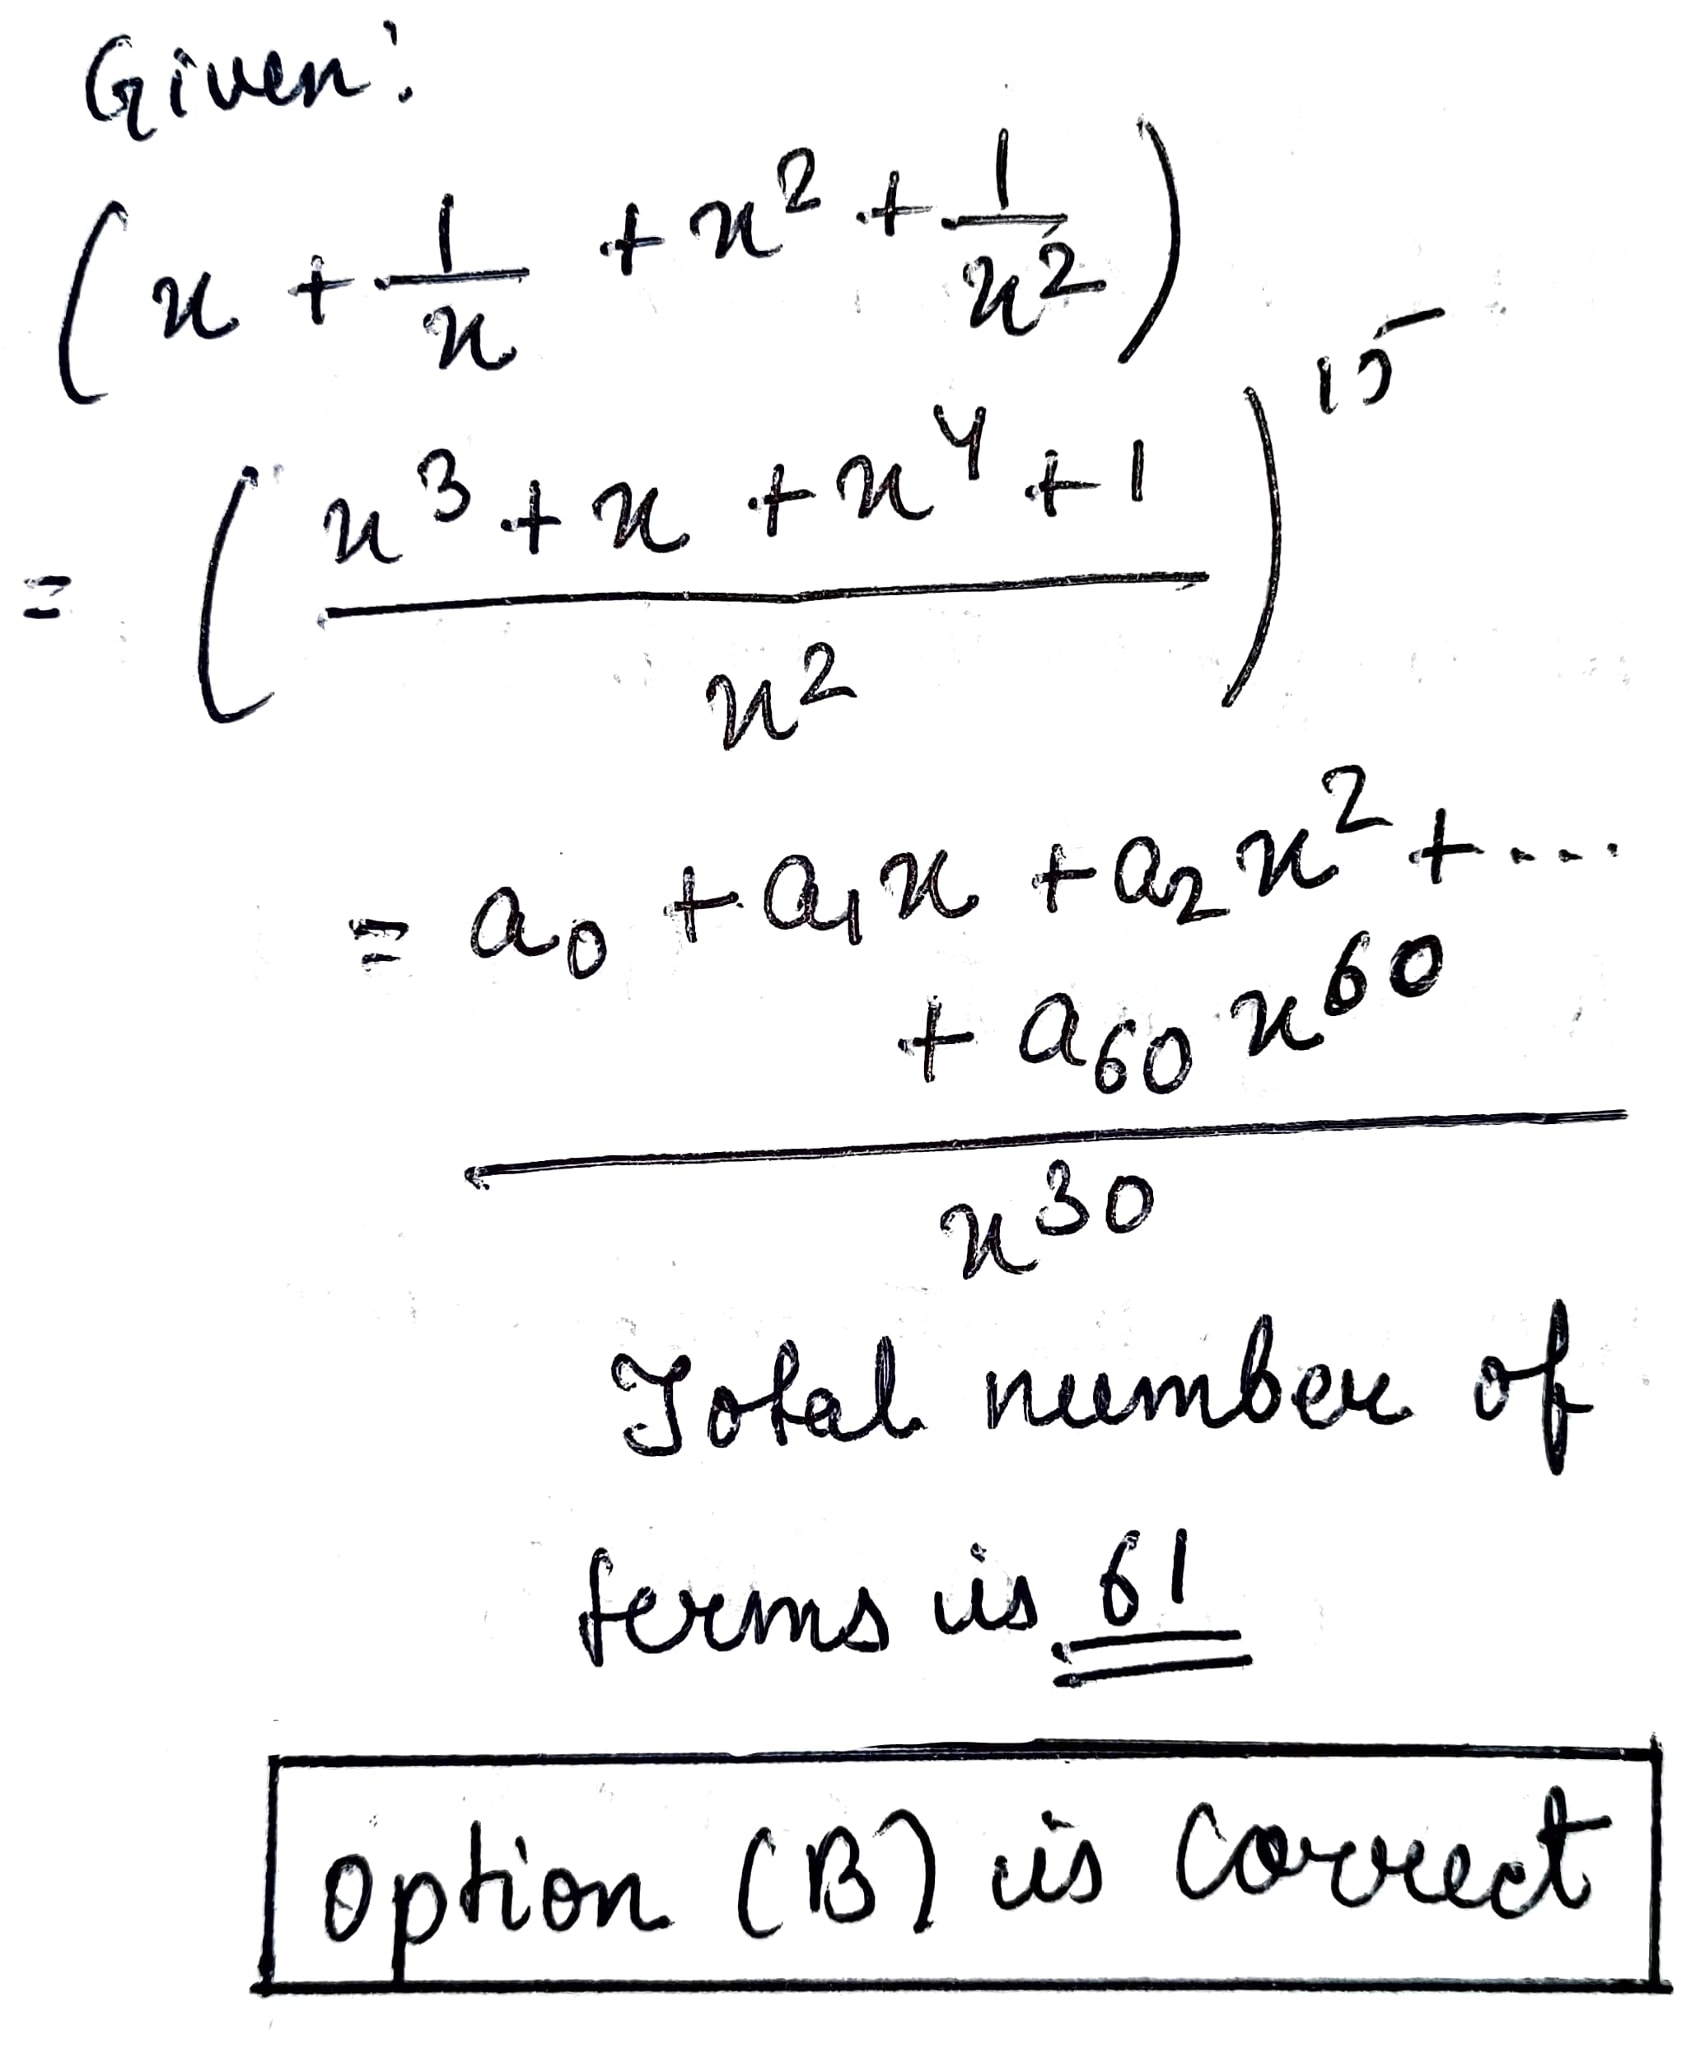 Given:
(x + 1/x + x² + 1/x²)
= ((x³ + x + x⁴ + 1)/x²)¹⁵
= a₀ + a₁x + a₂x² + ....
+ a₆₀x⁶⁰
x³⁰
Total number of
terms is 61
option (B) is correct